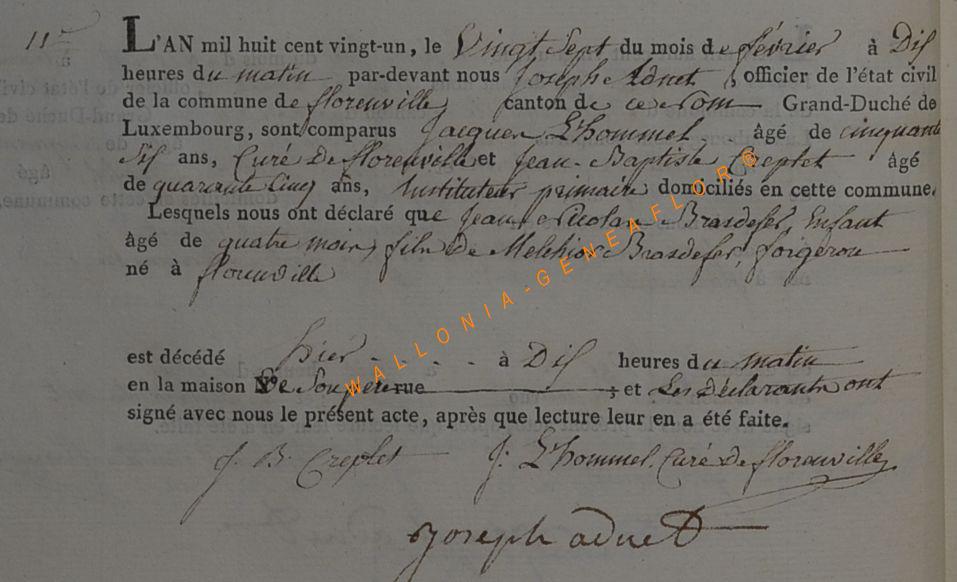 11e
L'AN mil huit cent vingt-un, le Vingt Sept du mois de février à Dix
heures du matin par-devant nous Joseph Adnet, officier de l'état civil
de la commune de florenville, canton de ce nom Grand-Duché de
Luxembourg, sont comparus Jacques L'hommel âgé de cinquante
Six ans, Curé De florenville et Jean-Baptiste Creplet âgé
de quarante Cinq ans, Instituteur primaire domiciliés en cette commune.
Lesquels nous ont déclaré que Jean Nicolas Brasdefer, Enfant
âgé de quatre mois, fils De Melchior Brasdefer, forgeron
né à florenville
est décédé hier à Dix heures du matin
en la maison De Son pere rue ; et Les Déclarants ont
signé avec nous le présent acte, après que lecture leur en a été faite.
J. B. Creplet J. L'hommel. Curé De florenville
Joseph adnet
WALLONIA-GENEAFLOR©